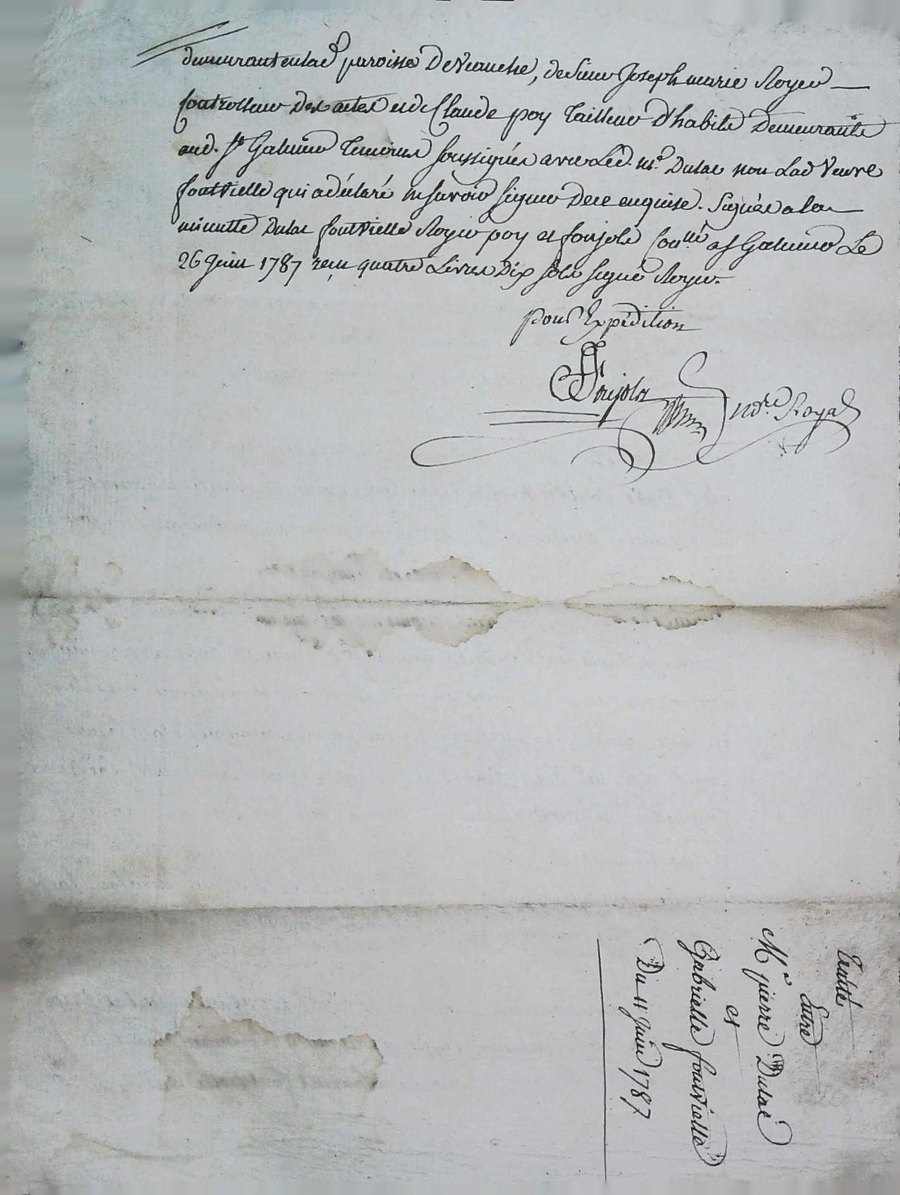 demeurant en lad. paroisse de Veauche, de Sieur Joseph marie Royer
Controlleur des actes et de Claude poy Tailleur d'habits Demeurants
aud. St Galmier Temoins soussignés avec led. me. Dulac non lad Veuve
fontvielle qui a déclaré ne savoir signer de ce enquise. Signés a la
minutte Dulac fontvielle Royer poy et foujols Conllé a St Galmier Le
26 Juin 1787 reçu quatre Livres Dix sols signé Royer.
pour Expédition
foujols
ndre. Royal
Traité
Entre
Me pierre Dulac
et
Gabrielle fontvielle
Du 11 Juin 1787